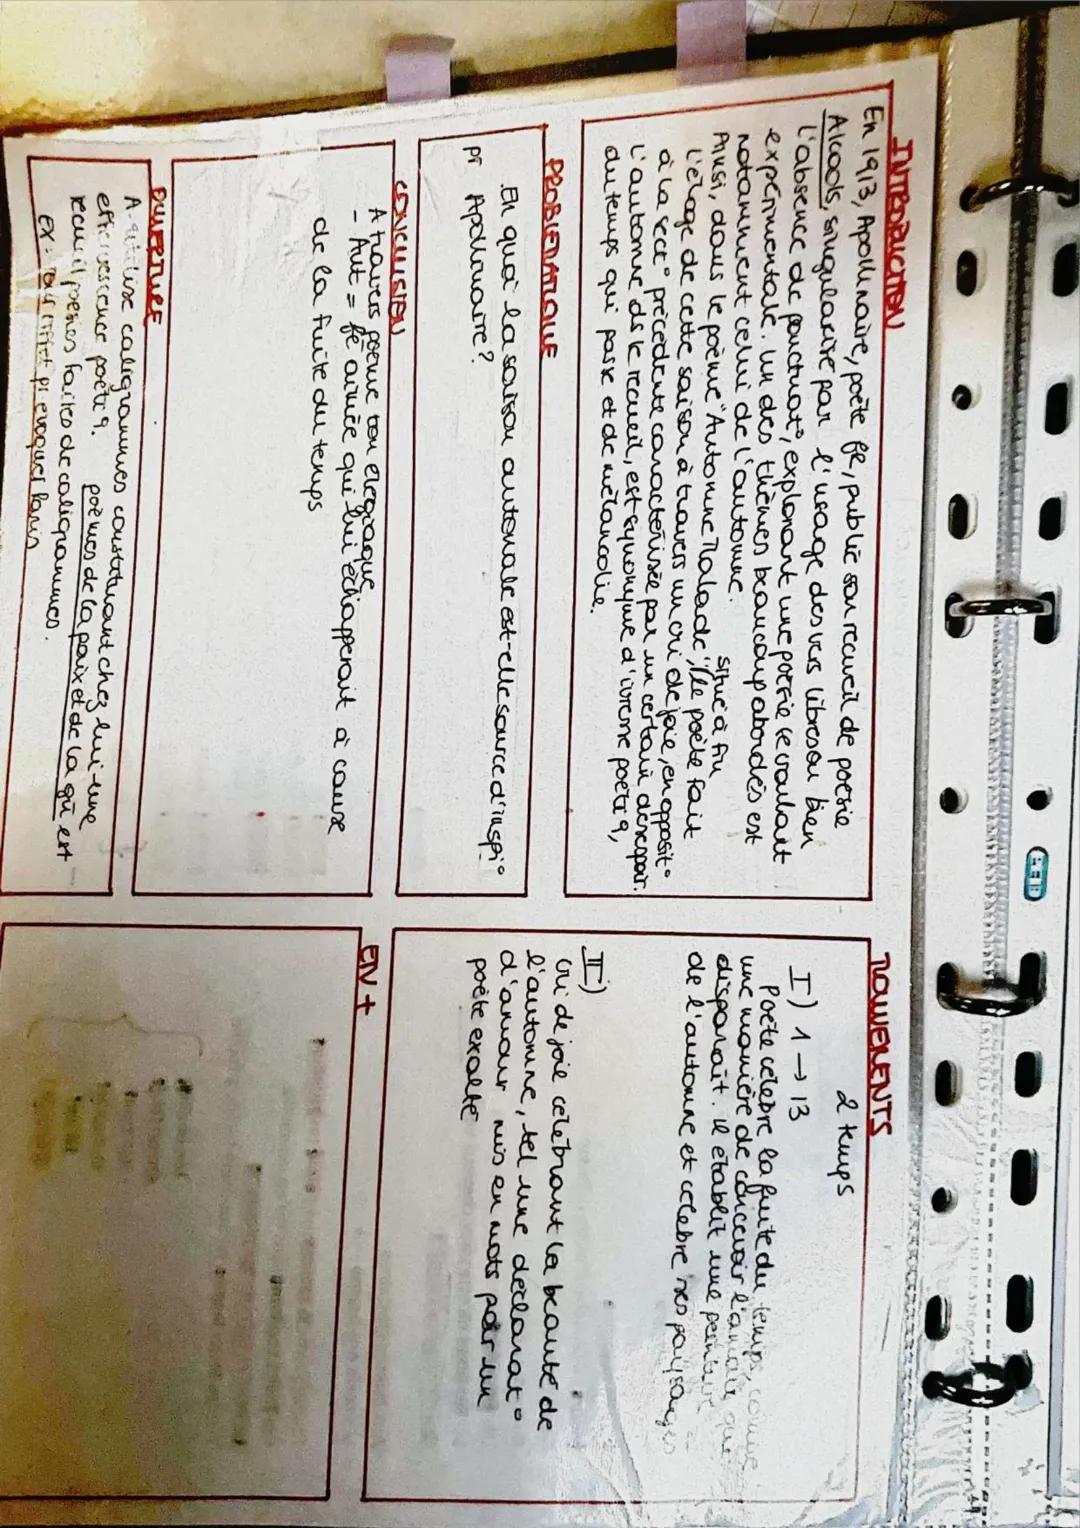 INTRODUCTION
En 1913, Apollinaire, poète fr, publie son recueil de poésie
Alcools, singularisé par l'usage des vers libres ou bien
l'absence de ponctuat°, explorant une poésie se voulant
expérimentale. Un des thèmes beaucoup abordés est
notamment celui de l'automne.
situé à fin
Ainsi, dans le poème "Automne Malade", le poète fait
l'éloge de cette saison à travers un cri de joie, en opposit°
à la sect° précédente caractérisée par un certain désespoir.
L'automne ds le recueil, est synonyme d'ivresse poétiq,
du temps qui passe et de mélancolie.
PROBLEMATIQUE
En quoi la saison automnale est-elle source d'inspi°
pr Apollinaire?
CONCLUSION
A travers poème ton élégiaque
- Aut = fê aimée qui lui échapperait à cause
de la fuite du temps
OUVERTURE
A. utilise caligrammes constituant chez lui une
effervescence poétiq. poèmes de la paix et de la gü est
recueil poèmes faites de caligrammes.
ex: Tour Eiffel pr évoquer Paris
MOUVEMENTS
2 temps
I) 1 → 13
Poète célèbre la fuite du temps, comme
une manière de concevoir l'amour qui
disparaît. Il établit une peinture
de l'automne et célèbre ses paysages
II)
Cri de joie célébrant la beauté de
l'automne, tel une déclarat°
d'amour mis en mots par un
poète exalté
EN +